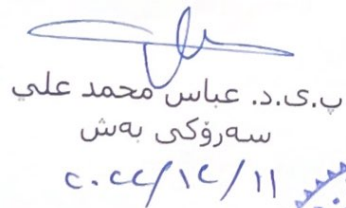 پ.ی.د. عباس محمد علي
سەرۆکی بەش
٢٠٢٢/١٢/١١